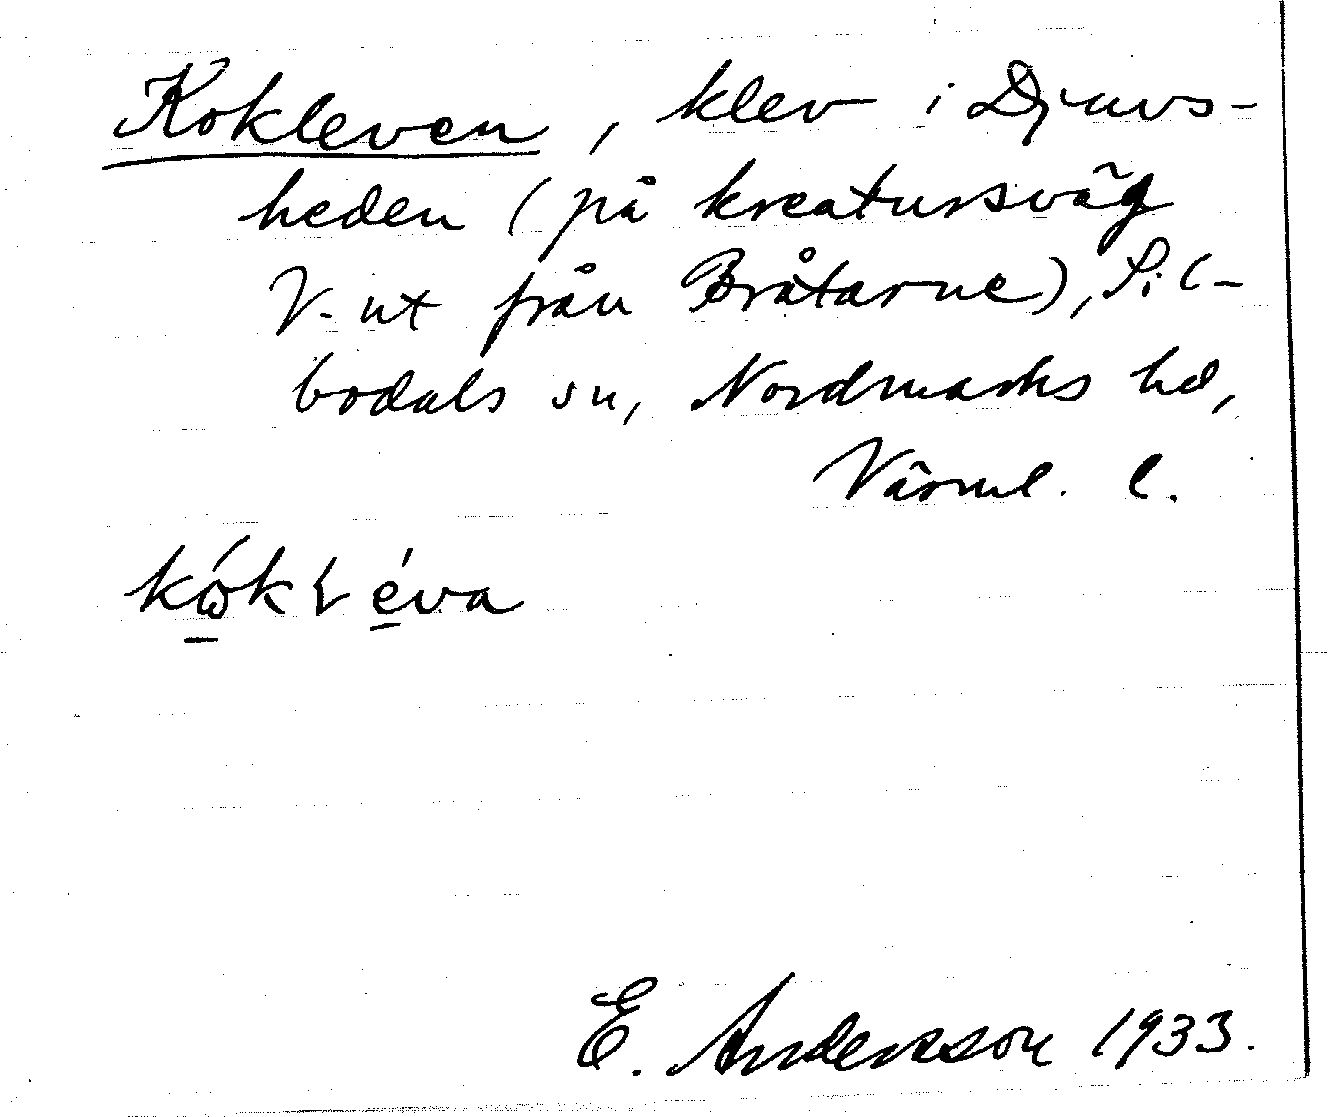 Kokleven, klev i Djuvs-
heden (på kreatursväg
V. ut från Bråtarne), Sil-
bodals sn, Nordmarks hd,
Värml. l.
kώ̱kⱢé̱va
E. Andersson 1933.